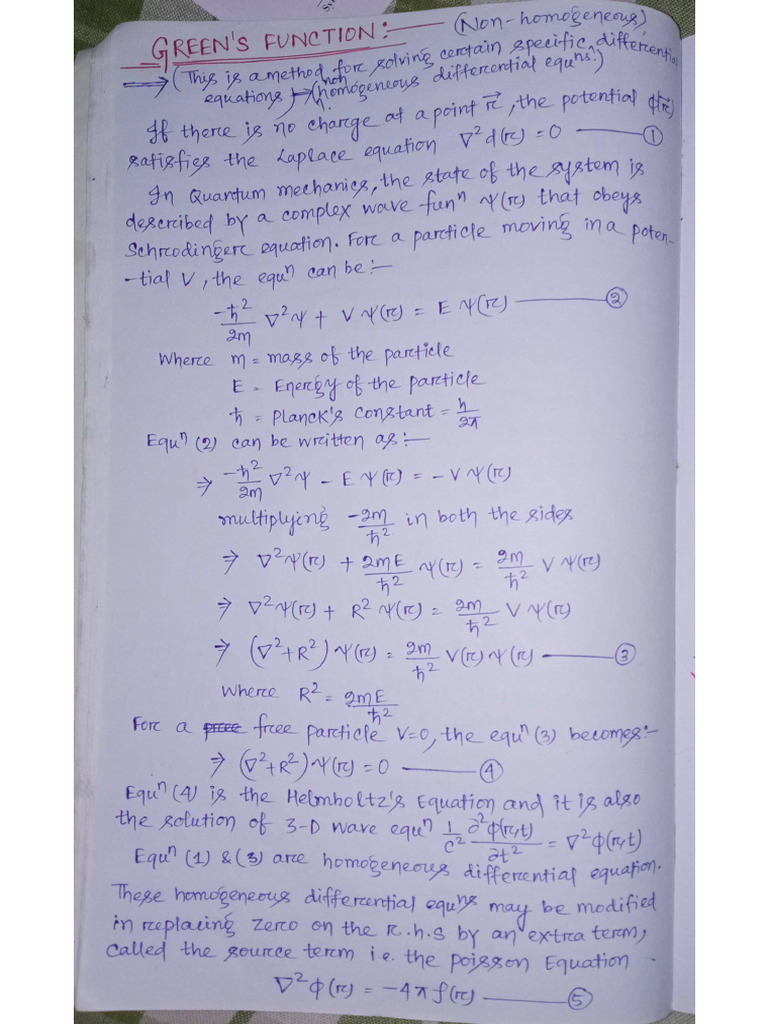 GREEN'S FUNCTION :— (Non-homogeneous)
→ (This is a method for solving certain specific differential
equations) → (non homogeneous differential equns.)
If there is no charge at a point r⃗, the potential ϕ(r⃗)
satisfies the Laplace equation ∇²d(r) = 0 —— ①
In Quantum mechanics, the state of the system is
described by a complex wave funⁿ ψ(r) that obeys
Schrodinger equation. For a particle moving in a poten-
-tial V, the equⁿ can be :—
-ħ²/2m ∇²ψ + V ψ(r) = E ψ(r) —— ②
Where m = mass of the particle
E = Energy of the particle
ħ = Planck's Constant = h/2π
Equⁿ (2) can be written as :—
⇒ -ħ²/2m ∇²ψ - E ψ(r) = - V ψ(r)
multiplying -2m/ħ² in both the sides
⇒ ∇²ψ(r) + 2mE/ħ² ψ(r) = 2m/ħ² V ψ(r)
⇒ ∇²ψ(r) + R² ψ(r) = 2m/ħ² V ψ(r)
⇒ (∇²+R²) ψ(r) = 2m/ħ² V(r) ψ(r) —— ③
Where R² = 2mE/ħ²
For a free particle V=0, the equⁿ (3) becomes :-
⇒ (∇²+R²) ψ(r) = 0 —— ④
Equⁿ (4) is the Helmholtz's Equation and it is also
the solution of 3-D wave equⁿ 1/c² ∂²ϕ(r,t)/∂t² = ∇²ϕ(r,t)
Equⁿ (1) & (3) are homogeneous differential equation.
These homogeneous differential equns may be modified
in replacing Zero on the R.h.s by an extra term,
called the source term i.e. the poisson Equation.
∇²ϕ(r) = -4π ρ(r) —— ⑤